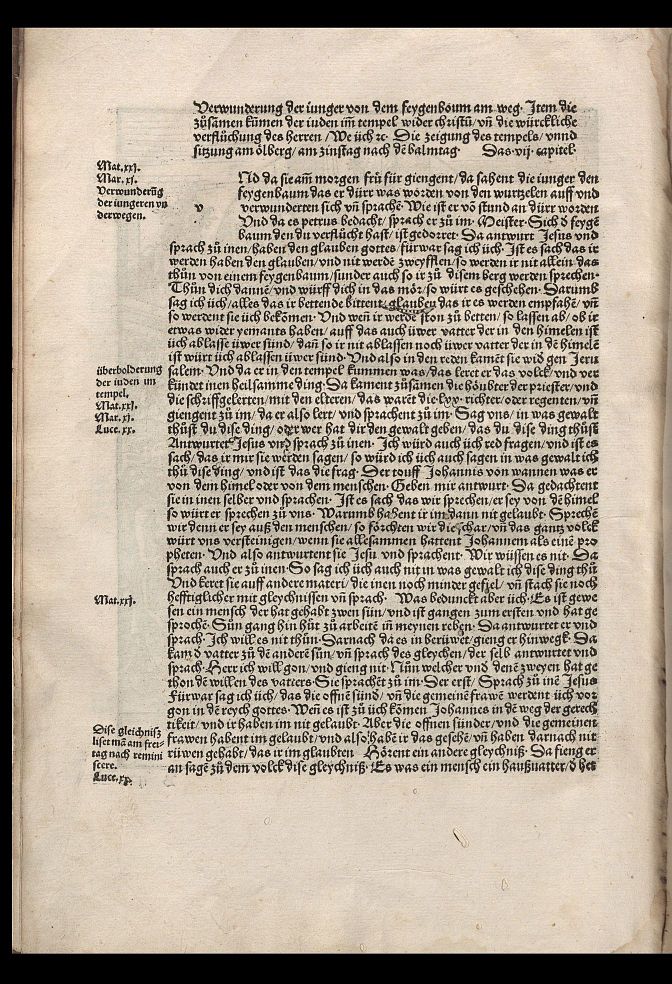 Verwunderung der iunger von dem feygenboum am weg. Item die
zůsamen kumen der iuden im̄ tempel wider christū/ vn̄ die würckliche
verflůchung des herren/ We üch ꝛc. Die zeigung des tempels/ vnnd
sitzung am ölberg/ am zinstag nach dē balmtag. Das .vij. capitel.
Mat.xxj.
Mar. xj.
Verwunderūg
der iungeren vn̄
der wegen.
v
ND da sie am̄ morgen frů für giengent/ da sahent die iunger den
feygenbaum das er dürr was worden von den wurtzelen auff vnd
verwunderten sich vn̄ sprachē. Wie ist er vō stund an dürr worden
Vnd da es petrus bedacht/ sprach er zů im. Meister. Sich d̄ feygē
baum den du verflůcht hast/ ist gedorret. Da antwurt Jesus vnd
sprach zů inen/ haben den glauben gottes/ fürwar sag ich üch. Ist es sach das ir
werden haben den glauben/ vnd nit werdē zweyfflen/ so werden ir nit allein das
thůn von einem feygenbaum/ sunder auch so ir zů disem berg werden sprechen.
Thůn dich danne/ vnd würff dich in das mör/ so würt es geschehen. Darumb
sag ich üch/ alles das ir bettende bittent/ glauben das ir es werden empfahē/ vn̄
so werdent sie üch bekōmen. Vnd wen̄ ir werdē ston zu betten/ so lassen ab/ ob ir
etwas wider yemants haben/ auff das auch üwer vatter der in den himelen ist
üch ablasse üwer sünd/ dan̄ so ir nit ablassen noch üwer vatter der in dē himelē
ist würt üch ablassen üwer sünd. Vnd also in den reden kamēt sie wid̄ gen Jeru
salem. Vnd da er in den tempel kummen was/ das leret er das volck/ vnd ver
kündet inen heilsamme ding. Da kament zůsamen die höubter der priester/ vnd
die schrifftgelerten/ mit den elteren/ das warēt die .lxx. richter/ oder regenten/ vn̄
giengent zů im/ da er also lert/ vnd sprachent zů im. Sag vns/ in was gewalt
thůst du dise ding/ oder wer hat dir den gewalt geben/ das du dise ding thůst
Antwurtet Jesus vnd sprach zů inen. Ich würd auch üch red fragen/ vnd ist es
sach/ das ir mir sie werden sagen/ so würd ich üch auch sagen in was gewalt ich
thů dise ding/ vnd ist das die frag. Der touff Johannis von wannen was er
von dem himel oder von dem menschen. Geben mir antwurt. Da gedachtent
sie in inen selber vnd sprachen. Ist es sach das wir sprechen/ er sey von dē himel
so würt er sprechen zů vns. Warumb habent ir im dann nit gelaubt. Sprechē
wir denn er sey auß den menschen/ so förchten wir die schar/ vn̄ das gantz volck
würt vns versteinigen/ wenn sie allesammen hattent Johannem als einē pro
pheten. Vnd also antwurtent sie Jesu vnd sprachent. Wir wüssen es nit. Da
sprach auch er zů inen. So sag ich üch auch nit in was gewalt ich dise ding thů
Vnd keret sie auff andere materi/ die inen noch minder gefiel/ vn̄ stach sie noch
hefftiglicher mit gleychnissen vn̄ sprach. Was beduncket aber üch. Es ist gewe
sen ein mensch der hat gehabt zwen sün/ vnd ist gangen zum ersten vnd hat ge
sprochē. Sün gang hin hüt zů arbeitē im̄ meynen reben. Da antwurtet er vnd
sprach. Ich will es nit thůn. Darnach da es in berüwet/ gieng er hinwegk. Da
kam d̄ vatter zů dē anderē sün/ vn̄ sprach des gleychen/ der selb antwurtet vnd
sprach. Herr ich will gon/ vnd gieng nit. Nůn welcher vnd denē zweyen hat ge
thon dē willen des vatters. Sie sprachēt zů im. Der erst/ Sprach zů inē Jesus
Fürwar sag ich üch/ das die offnē sünd/ vn̄ die gemeinē frawē werdent üch vor
gon in dē reych gottes. Wen̄ es ist zů üch kōmen Johannes in dē weg der gerech
tikeit/ vnd ir haben im nit gelaubt. Aber die offnen sünder/ vnd die gemeinen
frawen habent im gelaubt/ vnd also haben ir das gesehē/ vn̄ haben darnach nit
rüwen gehabt/ das ir im glaubten. Hörent ein andere gleychniß. Da fieng er
an sagē zů dem volck dise gleychniß. Es was ein mensch ein haußuatter/ d̄ het
überbolderung
der iuden im
tempel.
Mat.xxj.
Mar. xj.
Luce.xx.
Mat.xxj.
Dise gleichnisz
liset mā am frei-
tag nach remini
scere.
Luce.xx.